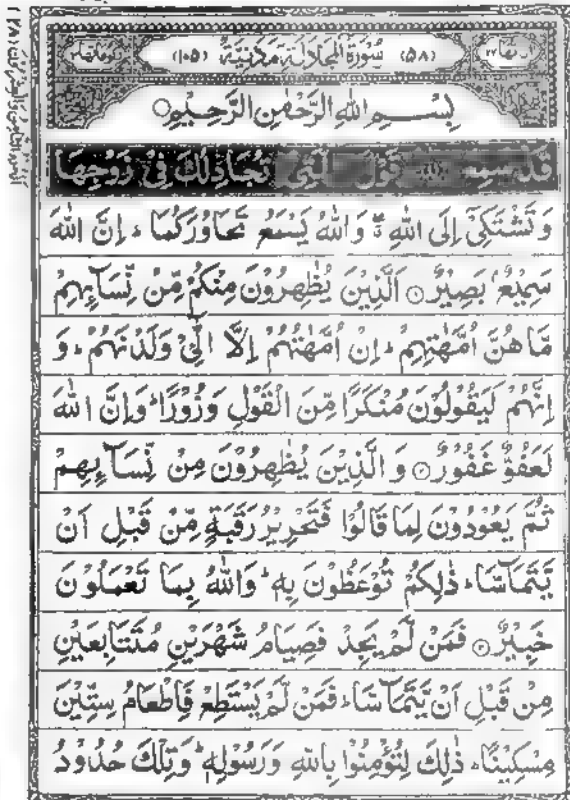 (٥٨) سُوْرَةُ الْمُجَادَلَةِ مَدَنِيَّةٌ (١٠٥)
بِسْمِ اللهِ الرَّحْمٰنِ الرَّحِيْمِ ○
قَدْ سَمِعَ اللهُ قَوْلَ الَّتِيْ تُجَادِلُكَ فِيْ زَوْجِهَا
وَ تَشْتَكِيْٓ اِلَى اللهِ ۖ وَاللهُ يَسْمَعُ تَحَاوُرَكُمَا ؕ اِنَّ اللهَ
سَمِيْعٌۢ بَصِيْرٌ ۝۱ اَلَّذِيْنَ يُظٰهِرُوْنَ مِنْكُمْ مِّنْ نِّسَآىِٕهِمْ
مَّا هُنَّ اُمَّهٰتِهِمْ ؕ اِنْ اُمَّهٰتُهُمْ اِلَّا الّٰٓـِٔيْ وَلَدْنَهُمْ ؕ وَ
اِنَّهُمْ لَيَقُوْلُوْنَ مُنْكَرًا مِّنَ الْقَوْلِ وَزُوْرًا ؕ وَاِنَّ اللهَ
لَعَفُوٌّ غَفُوْرٌ ۝۲ وَ الَّذِيْنَ يُظٰهِرُوْنَ مِنْ نِّسَآىِٕهِمْ
ثُمَّ يَعُوْدُوْنَ لِمَا قَالُوْا فَتَحْرِيْرُ رَقَبَةٍ مِّنْ قَبْلِ اَنْ
يَّتَمَآسَّا ؕ ذٰلِكُمْ تُوْعَظُوْنَ بِهٖ ؕ وَاللهُ بِمَا تَعْمَلُوْنَ
خَبِيْرٌ ۝۳ فَمَنْ لَّمْ يَجِدْ فَصِيَامُ شَهْرَيْنِ مُتَتَابِعَيْنِ
مِنْ قَبْلِ اَنْ يَّتَمَآسَّا ؕ فَمَنْ لَّمْ يَسْتَطِعْ فَاِطْعَامُ سِتِّيْنَ
مِسْكِيْنًا ؕ ذٰلِكَ لِتُؤْمِنُوْا بِاللهِ وَرَسُوْلِهٖ ؕ وَتِلْكَ حُدُوْدُ